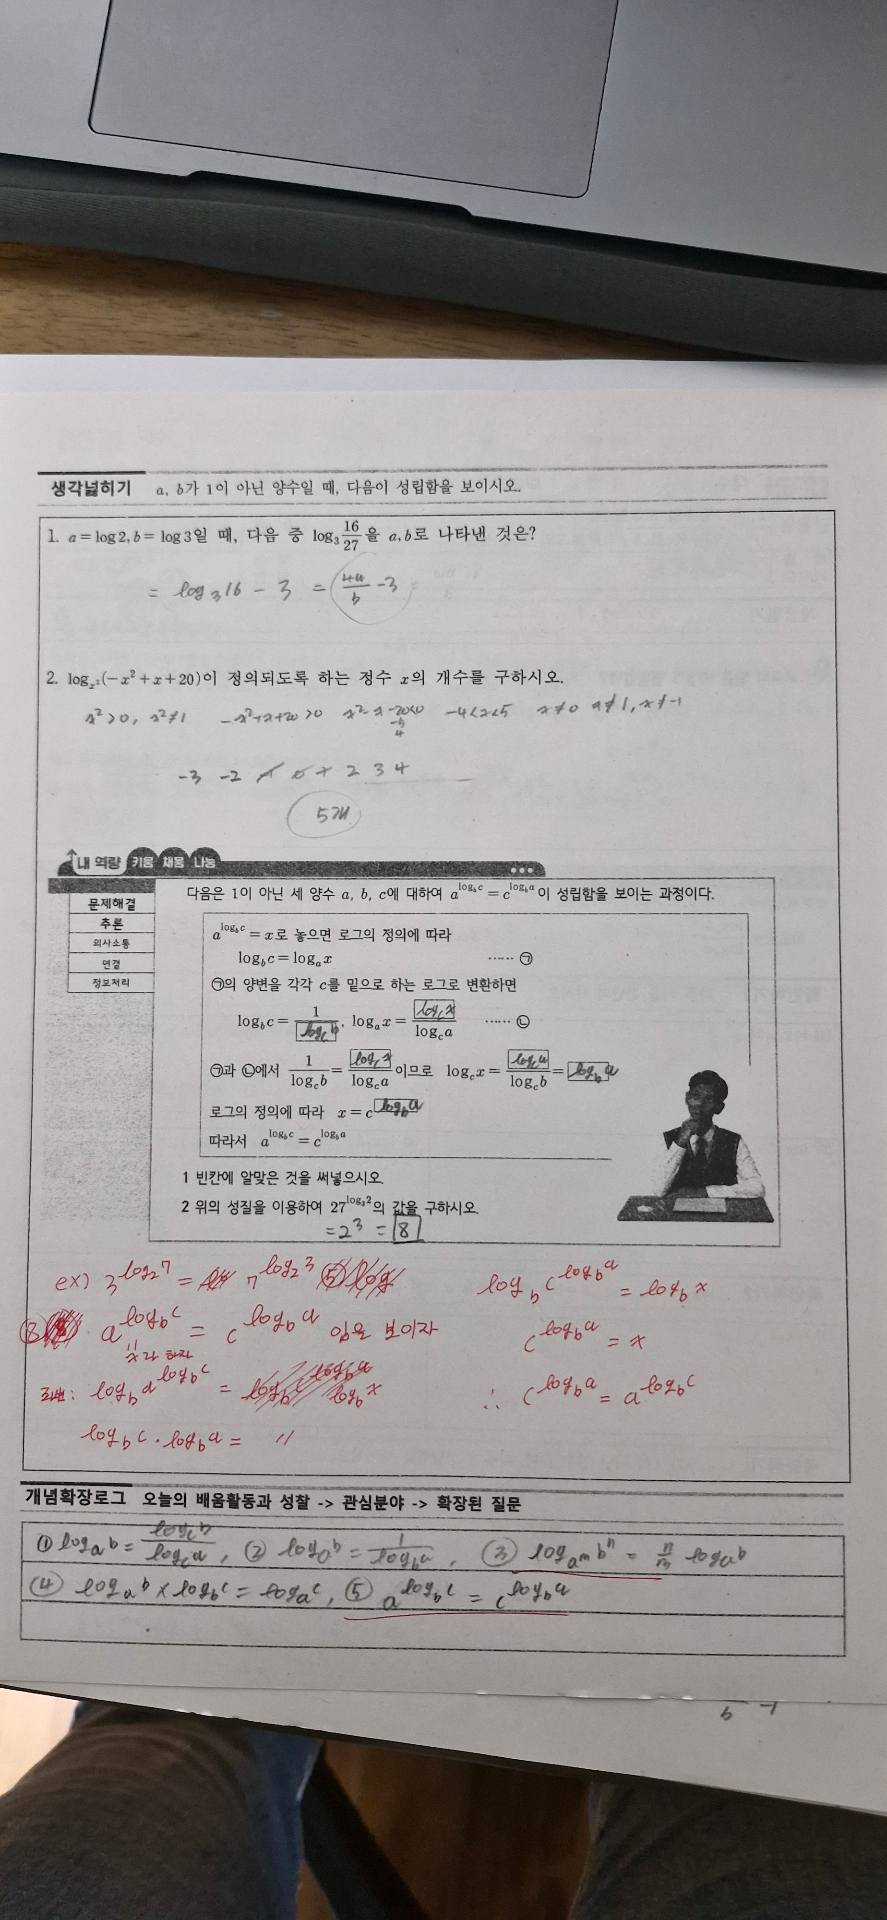 생각넓히기 a, b가 1이 아닌 양수일 때, 다음이 성립함을 보이시오.
1. a = log2, b = log3일 때, 다음 중 log₃ 16/27 을 a, b로 나타낸 것은?
= log₃16 - 3 = 4a/b - 3
2. log_{x²}(-x²+x+20)이 정의되도록 하는 정수 x의 개수를 구하시오.
x²>0, x²≠1 -x²+x+20>0 -4<x<5 x≠0 x≠1, x≠-1
-5
4
-3 -2 2 3 4
5개
내 역량 키움 채움 나눔
다음은 1이 아닌 세 양수 a, b, c에 대하여 a^{log_b c} = c^{log_b a}이 성립함을 보이는 과정이다.
문제해결
추론
의사소통
연결
정보처리
a^{log_b c} = x로 놓으면 로그의 정의에 따라
log_b c = log_a x ······ ㉠
㉠의 양변을 각각 c를 밑으로 하는 로그로 변환하면
log_b c = 1/log_c b, log_a x = log_c x/log_c a ······ ㉡
㉠과 ㉡에서 1/log_c b = log_c x/log_c a 이므로 log_c x = log_c a/log_c b = log_b a
로그의 정의에 따라 x = c^{log_b a}
따라서 a^{log_b c} = c^{log_b a}
1 빈칸에 알맞은 것을 써넣으시오.
2 위의 성질을 이용하여 27^{log₃2}의 값을 구하시오.
= 2³ = 8
ex) 3^{log₂7} = 7^{log₂3}
a^{log_b c} = c^{log_b a} 임을 보이자
x라 하자
좌변: log_b a^{log_b c} = log_b x
log_b c · log_b a = 〃
log_b c^{log_b a} = log_b x
c^{log_b a} = x
∴ c^{log_b a} = a^{log_b c}
개념확장로그 오늘의 배움활동과 성찰 -> 관심분야 -> 확장된 질문
① log_a b = log_c b/log_c a, ② log_a b = 1/log_b a, ③ log_{a^m} b^n = n/m log_a b
④ log_a b × log_b c = log_a c, ⑤ a^{log_b c} = c^{log_b a}